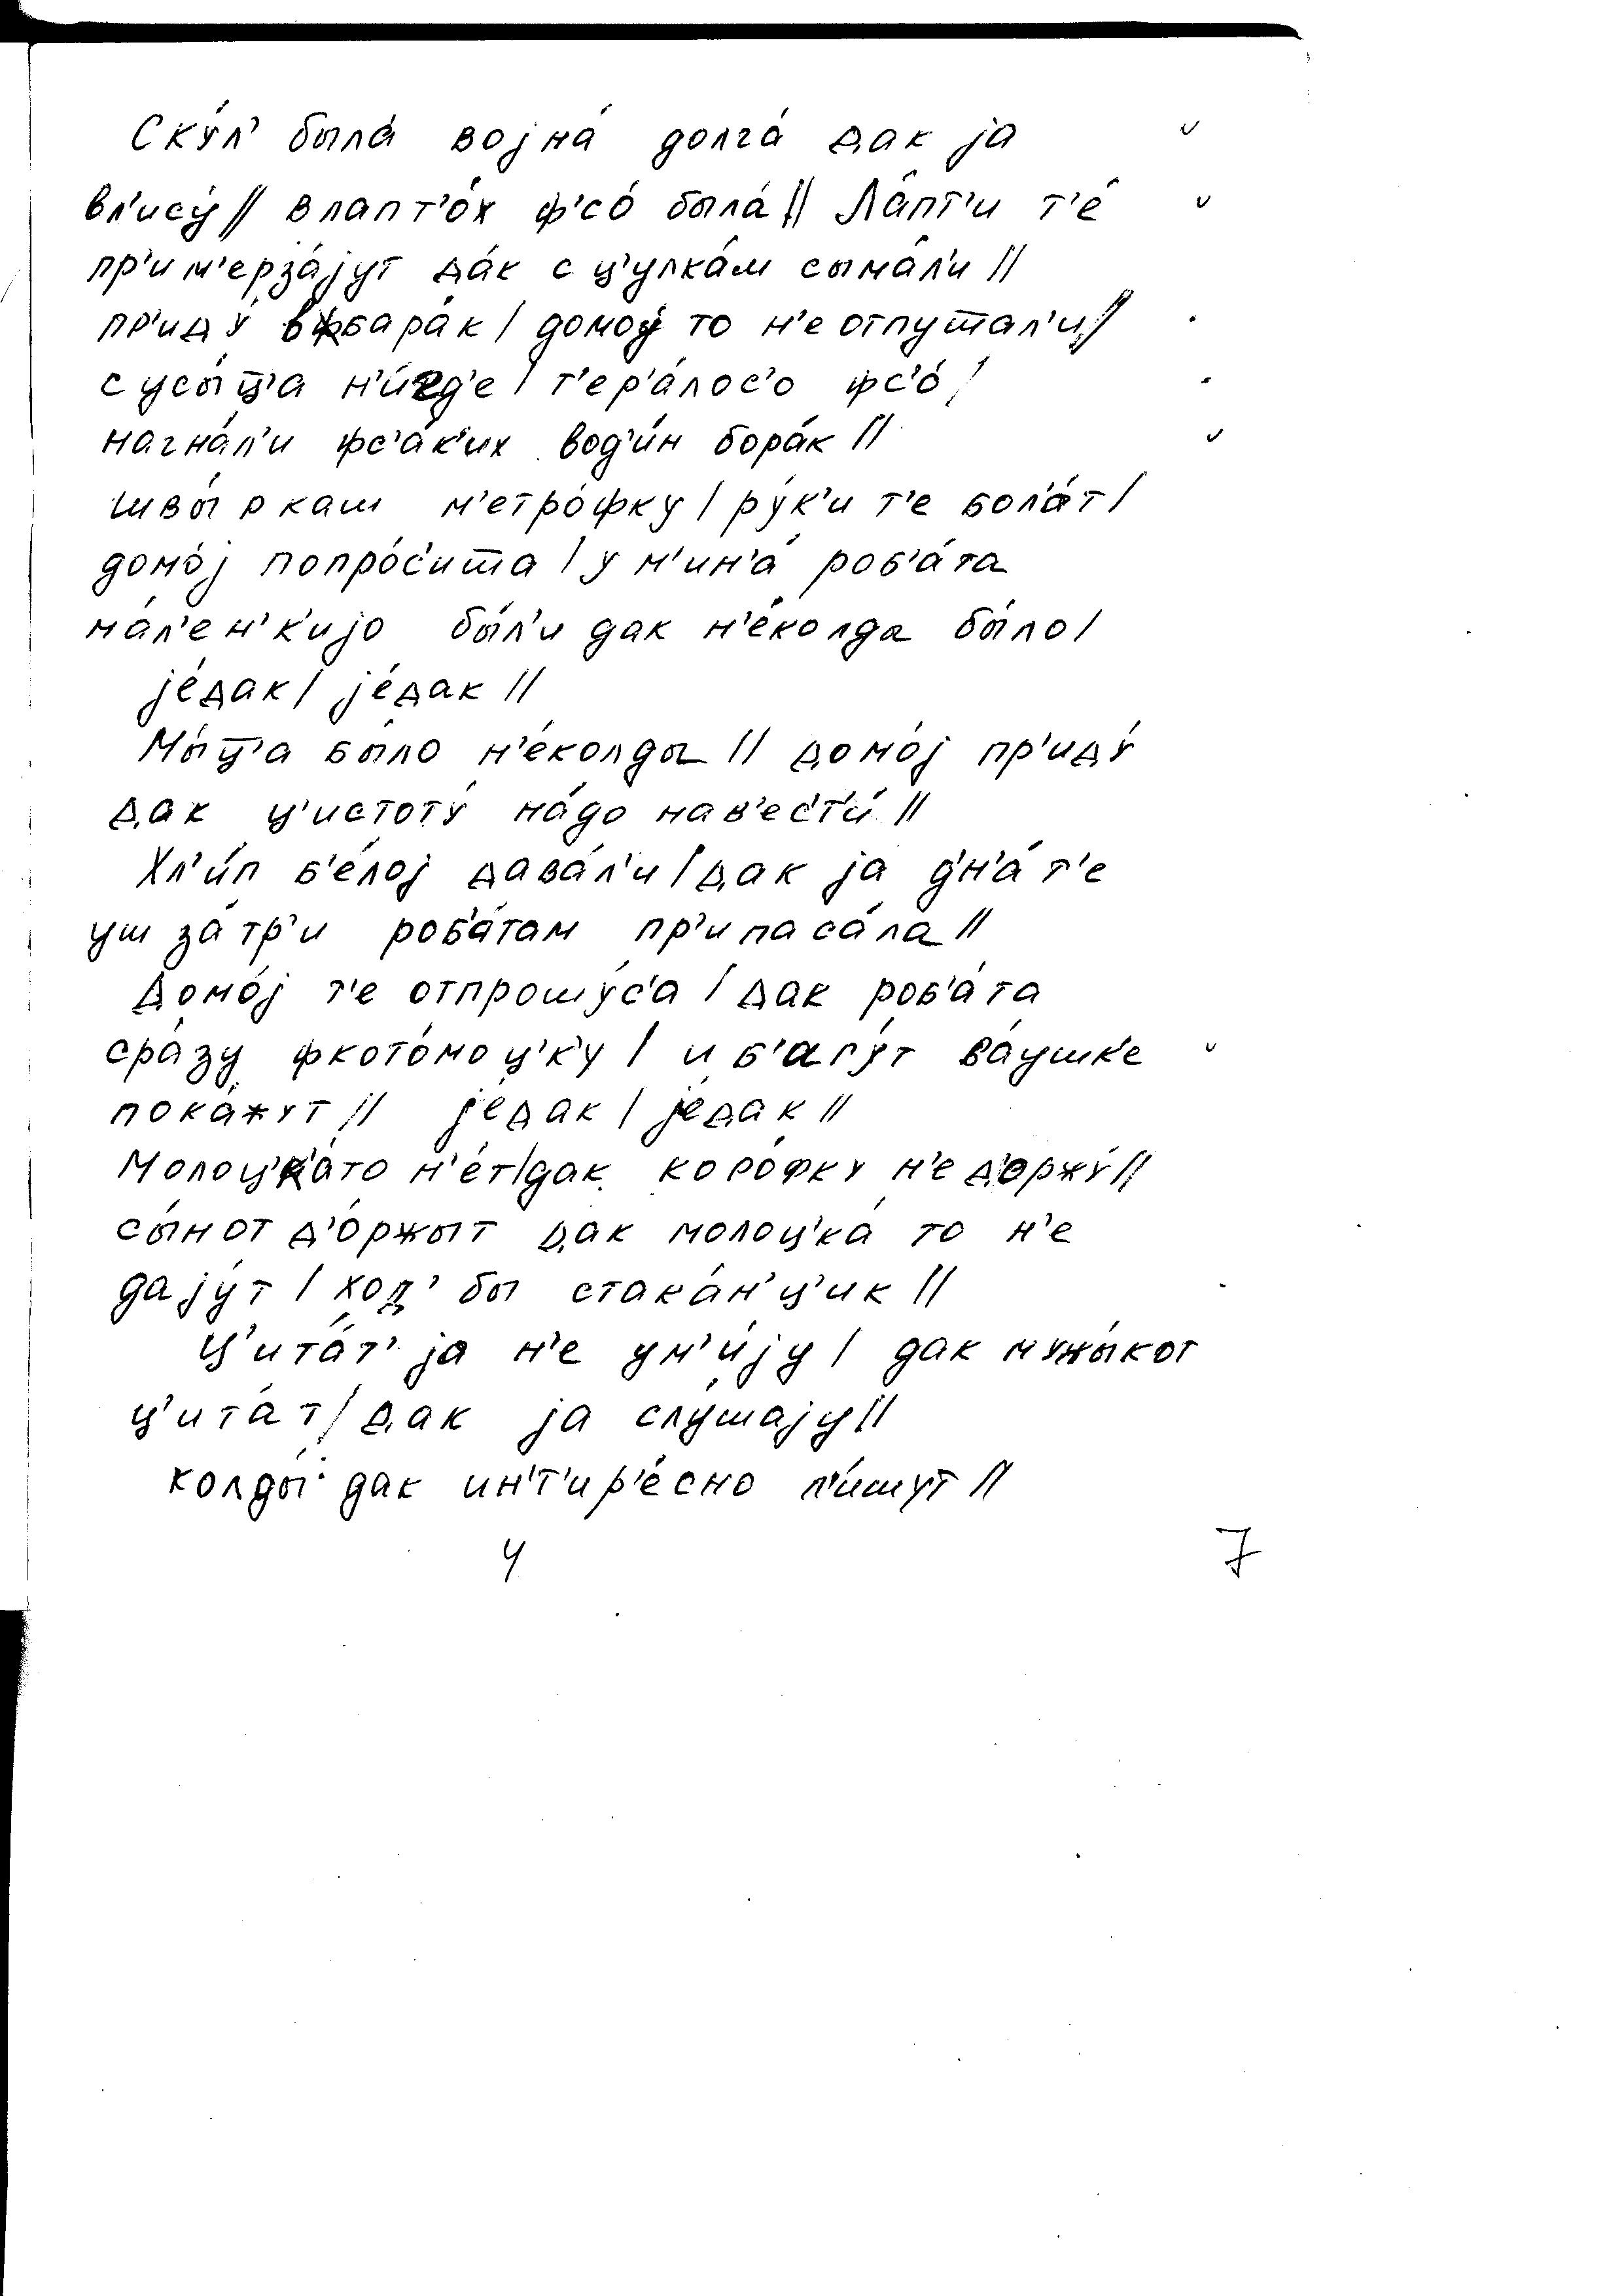 Ску́л' была́ војна́ долга́ дак ја
вл'ису́ // в лапт'о́х ф'со́ была́ // Ла́пт'и т'е́
пр'им'ерза́јут да́к с ц'улка́м сыма́л'и //
пр'иду́ в бара́к / домоу́ то н'е отпушшал'и //
сусы́ц'ц'а н'и́гд'е / т'ер'а́лос'о фс'о́ /
нагна́л'и фс'а́к'их вод'и́н бора́к //
швы́ркаш м'етро́фку / ру́к'и т'е бол'а́т /
домо́ј попро́с'ишша / у м'ин'а́ роб'а́та
ма́л'ен'к'ијо бы́л'и дак н'е́колды бы́ло /
је́дак / је́дак //
Мы́ц'ц'а бы́ло н'е́колды // домо́ј пр'иду́
дак ц'истоту́ на́до нав'ес'т'и́ //
Хл'и́п б'е́лој дава́л'и / дак ја д'н'а́ т'е
уш за́ тр'и роб'а́там пр'ипаса́ла //
Домо́ј т'е отпрошу́с'а / дак роб'а́та
сра́зу фкото́моц'к'у / и б'агу́т ва́ушк'е
пока́жут // је́дак / је́дак //
Молоц'ка́то н'е́т / дак коро́фку н'е д'оржу́ //
сы́нот д'о́ржыт дак молоц'ка́ то н'е
дају́т / хоц' бы стака́н'ц'ик //
Ц'ита́т' ја н'е ум'и́ју / дак мужы́кот
ц'ита́т / дак ја слу́шају //
колды́ дак ин'т'ир'е́сно п'и́шут //
4 7